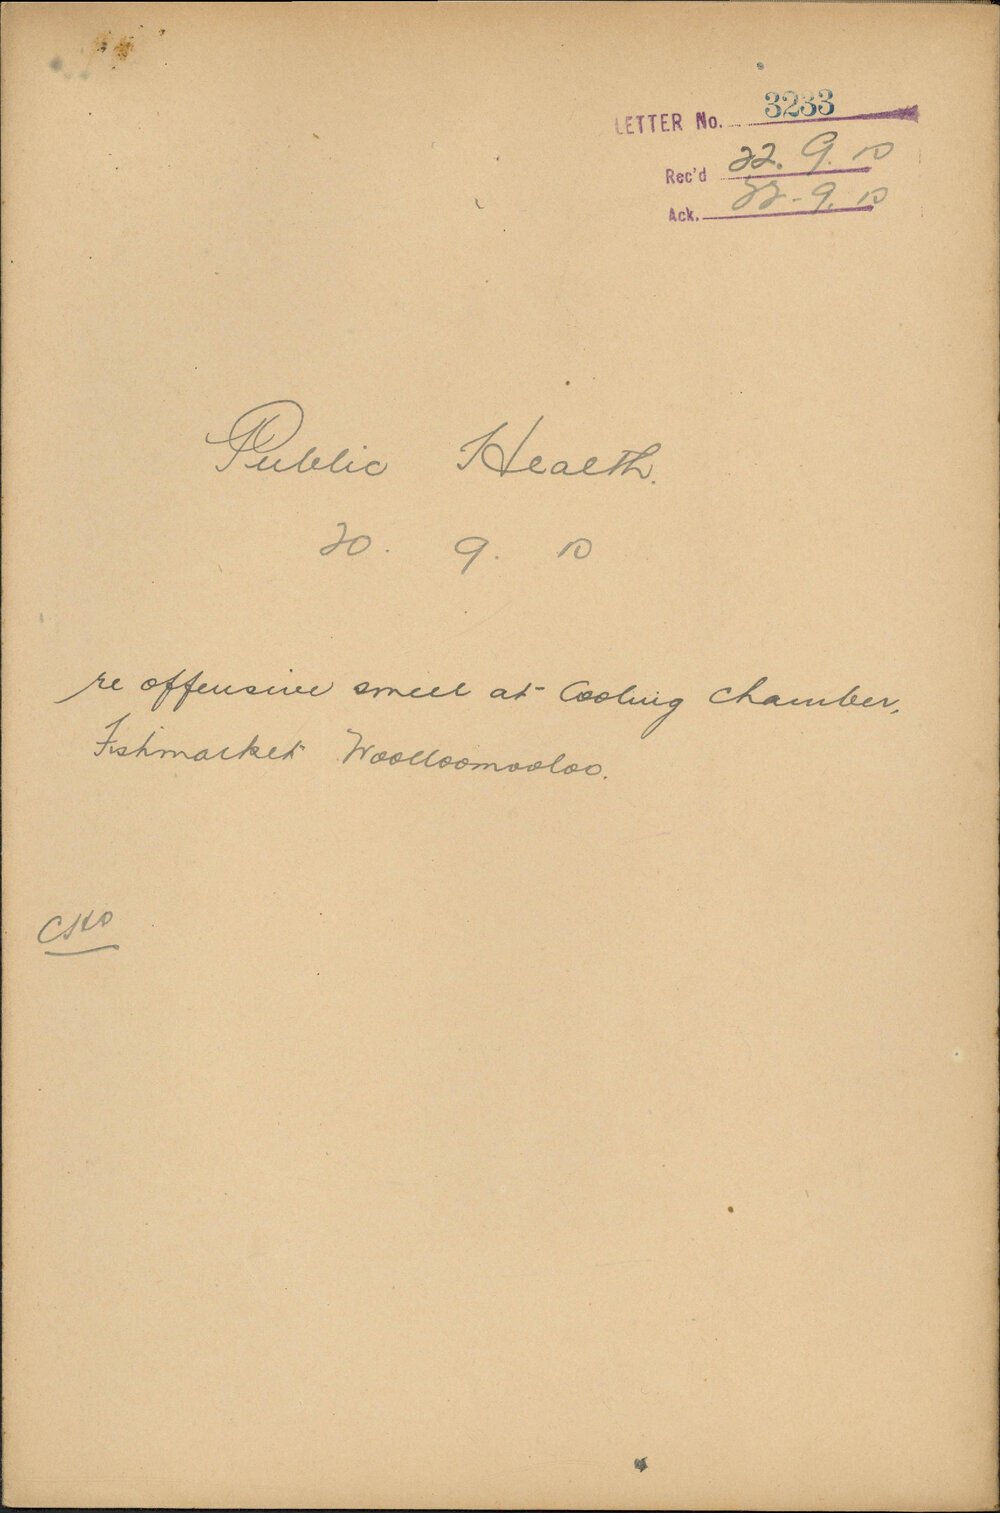 LETTER No. 3233
Rec'd 22. 9. 10
Ack. 22-9. 10
Public Health.
20. 9. 10
re offensive smell at Cooling Chamber,
Fishmarket Woolloomooloo.